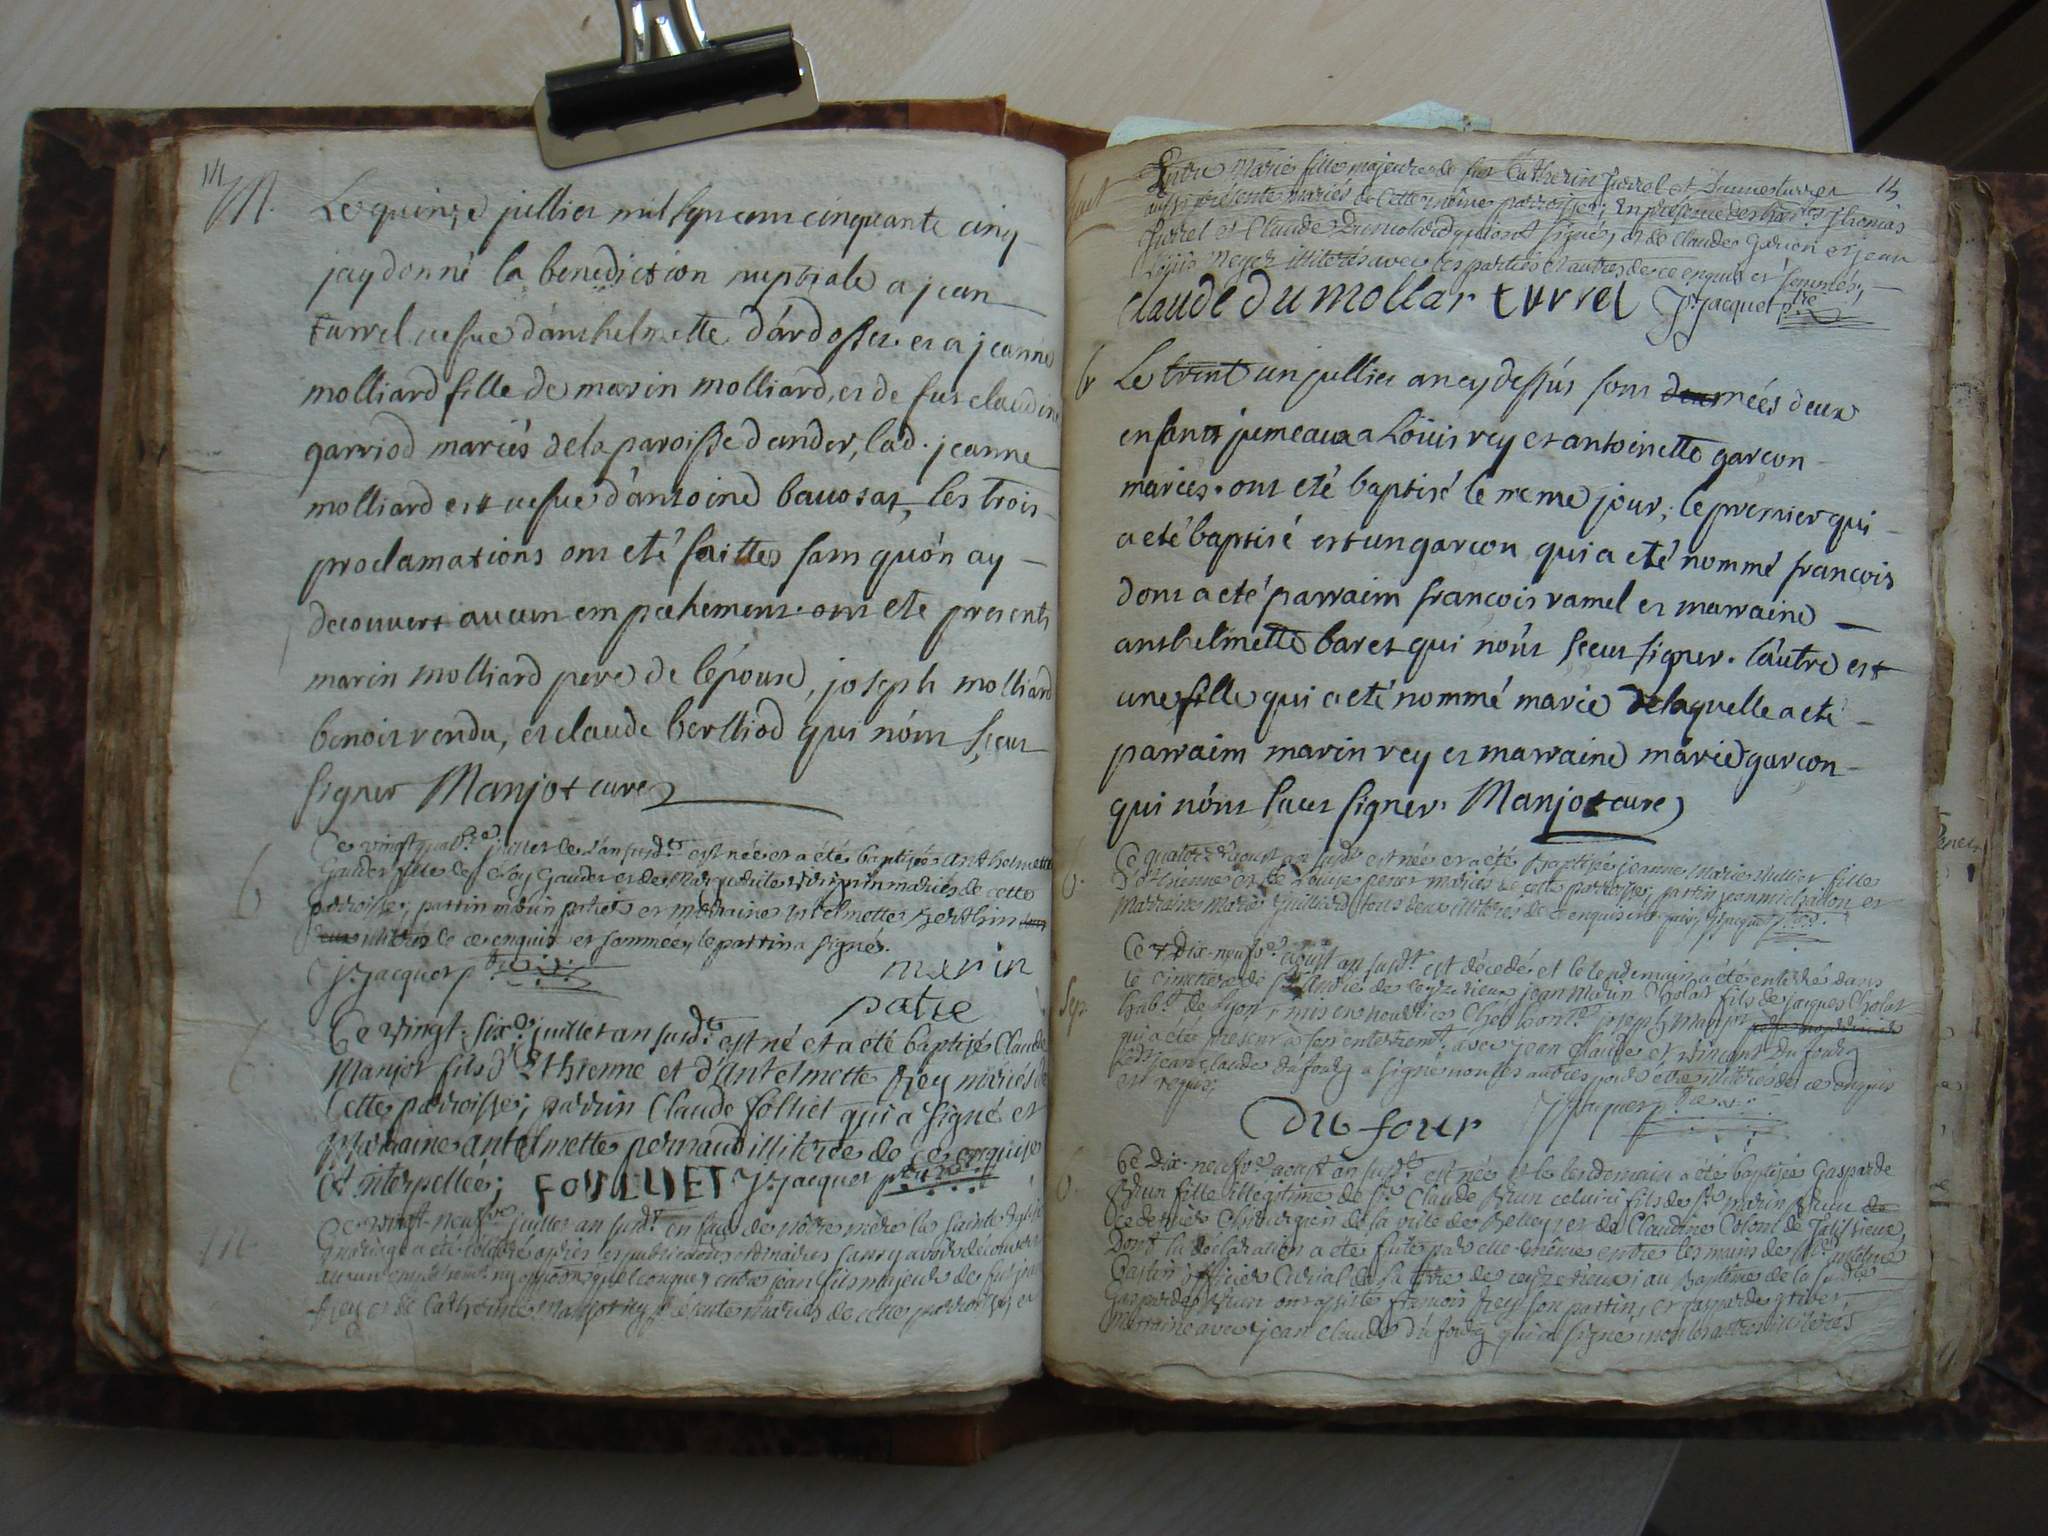 14
M.
Le quinze jullier mil sept cent cinquante cinq
jay donné la benediction nuptiale a jean
turrel vefue d'anthelmette d'árdosset et a jeanne
molliard fille de marin molliard, et de fut claudine
garriod mariés de la paroisse dander, lad. jeanne
molliard est vefue d'antoine bavosat, les trois
proclamations ont eté faittes sans qu'on ay
decouvert aucun empechement. ont ete presents
marin molliard pere de l'épouse, joseph molliard
benoit rendu, et claude berlliod qui nónt sceut
signer Manjot curé
b
Ce vingt juillet de l'an susd.t est née et a été baptizée anthelmette
Gauder fille de Eloy Gauder et de mariés de cette
parroisse; parrin marin patret et marraine Antelmette Berthin
illiteré de ce enquis et sommée, le parrin a signé.
J. jacquet p.tre
marin
patre
b
Ce vingt-six.e juillet an susd.t est né et a été baptizé Claude
Manjot fils d'Ethienne et d'Antelmette Rey mariés de
Cette parroisse; parrin Claude folliet qui a signé et
Marraine antelmette pernaud illiterée de ce enquise
et interpellée; FOLLIET J. jacquet p.tre
M
Ce vingt-neuf.e juillet an susd.t en face de nôtre mère la sainte Eglise
mariage a été célébré après les publications ordinaires sans y avoir découvert
aucun empechem.t ny opposôn quelconque; entre jean fils majeur de fut jean
Rey et de Catherine manjot icy présente mariés de cette parroisse, et
14
Entre Marie fille majeure de fut Catherin Turrel et
aussi présente mariés de cette même parroisse; En présence des hon.tes Thomas
Turrel et Claude Dumolard qui ont signés, et de Claude Garçon et jean
Loüis Meyer illiterés avec les parties et autres de ce enquis et sommés;
Claude du mollar turrel J. jacquet p.tre
b
Le trent un jullier an cy dessús sont nées deux
enfants jumeaux a Loüis rey et antoinette garçon
mariés. ont eté baptisé le meme jour; le premier qui
a eté baptisé est un garçon qui a eté nommé françois
dont a eté parraim françois ramel et marraine
anthelmette baret qui nónt sceut signer. láutre est
une fille qui a eté nommé marie delaquelle a eté
parraim marin rey et marraine márie garçon
qui nónt sceut signer. Manjot curé
b.
Ce quatorze aoust an susd.t est née et a été Baptizée jeanne Marie Jullier fille
d'Ethienne et de Louise mariés de cette parroisse; parrin jean michallon et
Marraine Marie tous deux illiterés de ce enquis J. jacquet p.tre
Sep.
Ce Dix-neuf.e aoust an susd.t est décedé et le lendemain a été enterré dans
le cimetiere de S.t André de ceyzerieux jean Marin Cholat fils de jacques Cholat
hab.t de Lyon, mis en nourrice chés hon.te joseph Manjot
qui a été present a son enterrem.t; avec jean Claude et vincent Du fourg
led.t jean Claude dufourg a signé non les autres pour être illiterés de ce enquis
et requis;
Du four J. jacquet p.tre
b.
Ce Dix-neuf.e aoust an susd.t est née et le lendemain a été baptizée Gasparde
Brun fille illegitime de s.r Claude Brun celuici fils de s.r marin Brun
ce dernier Chirurgien de la ville de Belley; et de Claudine Colont de Talissieux,
Dont la déclaration a été faite par elle-même entre les mains de M.e antelme
Officier Curial de la terre de ceyzerieux; au Baptême de la susd.te
Gasparde Brun ont assisté francois Rey son parrin, et gasparde
Marraine avec jean claude du fourg qui a signé, non les autres illiterés